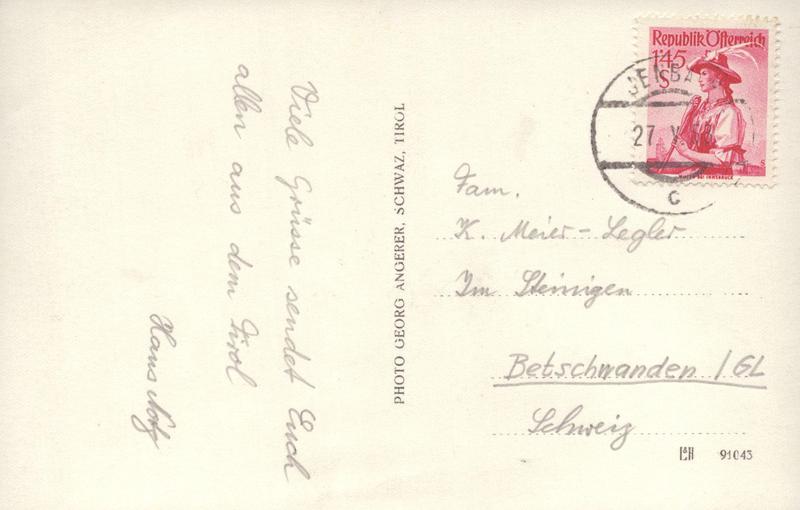 Viele Grüsse sendet Euch
allen aus dem Tirol
Hans
PHOTO GEORG ANGERER, SCHWAZ, TIROL
Republik Österreich
1'45
S
27. V. 58
C
Fam.
K. Meier-Legler
Im Steinigen
Betschwanden / GL
Schweiz
91043